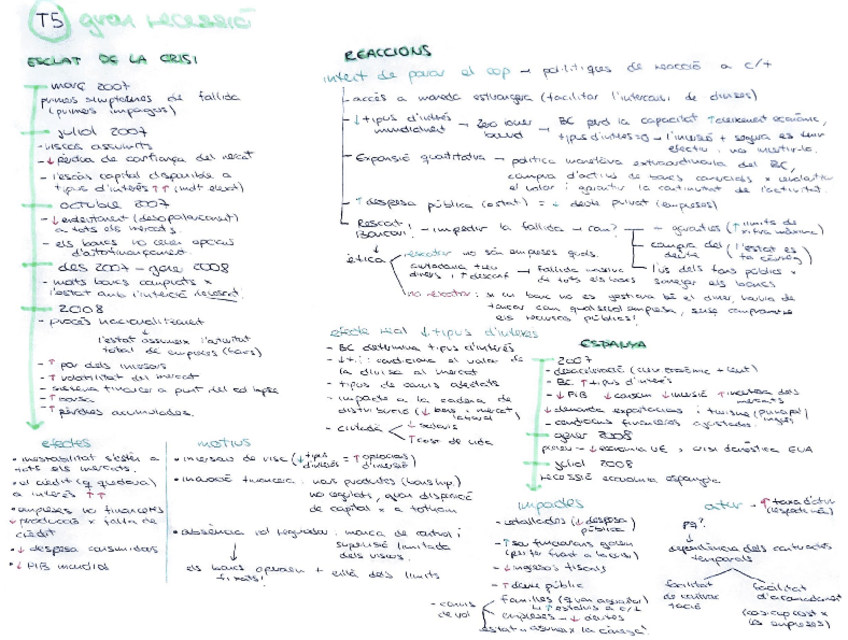 T5 gran recessió
ESCLAT DE LA CRISI
març 2007
primers símptomes de fallida
(primers impagos)
juliol 2007
- riscos assumits
- ↓ pèrdua de confiança del mercat
- l'escàs capital disponible a
tipus d'interés ↑↑ (molt elevat)
octubre 2007
- ↓ endeutament (desapalancament)
a tots els mercats.
- els bancs no tenen opcions
d'autofinançament.
des 2007 - gener 2008
- molts bancs comprats x
l'estat amb l'intenció
2008
- procés nacionalitzament
l'estat assumeix l'activitat
total de empreses (bancs)
- ↑ por dels inversors
- ↑ volatilitat del mercat
- sistema financer a punt del col·lapse
- ↑ borsa
- ↑ pèrdues acumulades.
efectes
• inestabilitat s'estén a
tots els mercats.
• el crèdit (q quedava)
a interés ↑↑
• empreses no financeres
↓ producció x falta de
crèdit
• ↓ despesa consumidors
• ↓ PIB mundial
motius
• inversors de risc (↓ tipus d'interés = ↑ opcions d'inversió)
• innovació financera: nous productes
no regulats, gran disposició
de capital x a tothom
• absència rol regulador: manca de control i
supervisió limitada
dels riscos.
els bancs operaven + enllà dels límits
fixats!
REACCIONS
intent de parar el cop → polítiques de reacció a c/t
- accés a moneda estrangera (facilitar l'intercanvi de divises)
- ↓ tipus d'interés mundialment → zero lower bound → BC perd la capacitat ↑ creixement econòmic,
tipus d'interés=0 → l'inversió + segura es tenir
efectiu i no invertir-lo.
- Expansió quantitativa → política monetària extraordinària del BC,
compra d'actius de bancs comercials x
el valor i garantir la continuïtat de l'activitat.
- ↑ despesa pública (estat) = ↓ deute privat (empreses)
- Rescat! Bancari! - impedir la fallida → com?
- garanties (↑ límits de
- compra del deute (l'estat es
- l'ús dels fons públics x
sanejar els bancs
ètica
rescatar: no són empreses quals.
ciutadania treu diners i ↑ desconf → fallida massiva
de tots els bancs
no rescatar: si un banc no es gestiona bé el diner, hauria de
tancar com qualsevol empresa, sense comprometre
els recursos públics!
efecte real ↓ tipus d'interés
- BC determina tipus d'interés
- ↓ t.i: condiciona el valor de
la divisa al mercat
- tipus de canvis afectats
- impacte a la cadena de
distribució (↓ bens i mercat laboral)
- ciutadà ↓ salaris
↑ cost de vida
ESPANYA
2007
- desacceleració (creix. econòmic + lent)
- BC ↑ tipus d'interés
- ↓ PIB ↓ consum ↓ inversió ↑ incertesa dels mercats
- ↓ demanda exportacions i turisme (principal
- condicions financeres ajustades.
gener 2008
↓ economia UE, crisi domèstica EUA
juliol 2008
recessió economia espanyola
impactes
- retallades (↓ despesa pública)
- ↑ sou funcionaris
(per fer front a la crisi)
- ↓ ingressos fiscals
- ↑ deute pública
- canvis de rol
famílies
↑ estalvis a c/t
empreses → ↓ deutes
estat → assumeix la càrrega!
atur → ↑ taxa d'atur
pq?
dependència dels contractes
temporals
facilitat de contractació
facilitat d'acomiadament
(cost x
les empreses)